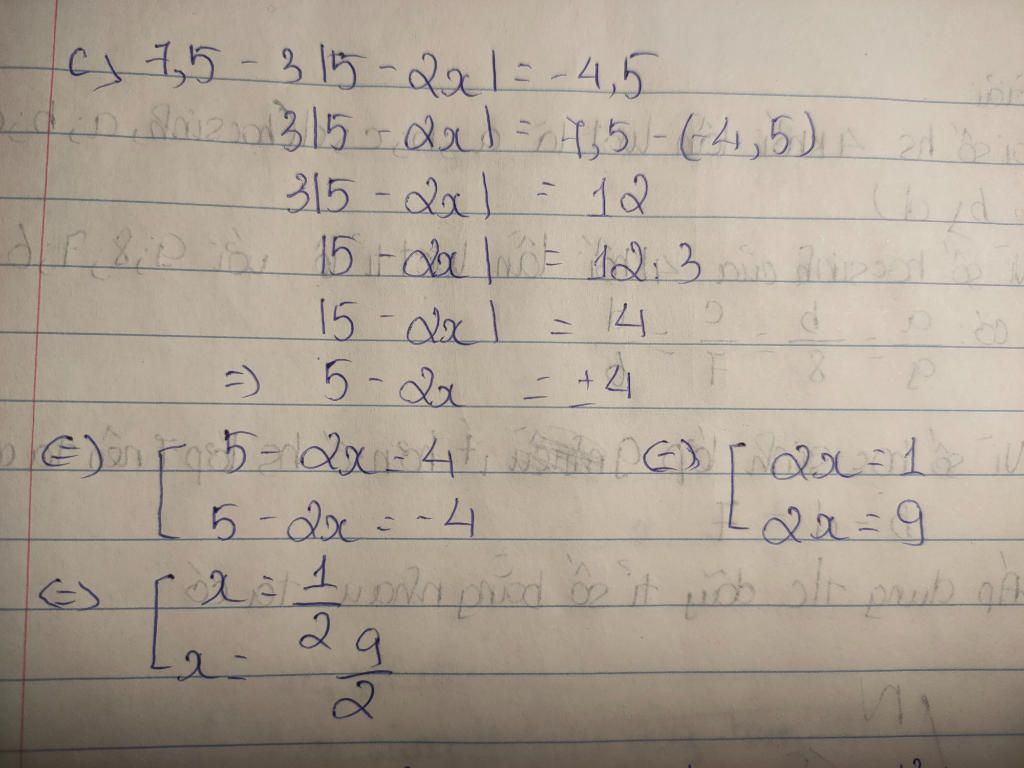 c) 7,5 - 3|5 - 2x| = -4,5
3|5 - 2x| = 7,5 - (-4,5)
3|5 - 2x| = 12
|5 - 2x| = 12 : 3
|5 - 2x| = 4
=> 5 - 2x = ±4
<=> [ 5 - 2x = 4 <=> [ 2x = 1
5 - 2x = -4 2x = 9
<=> [ x = 1/2
x = 9/2